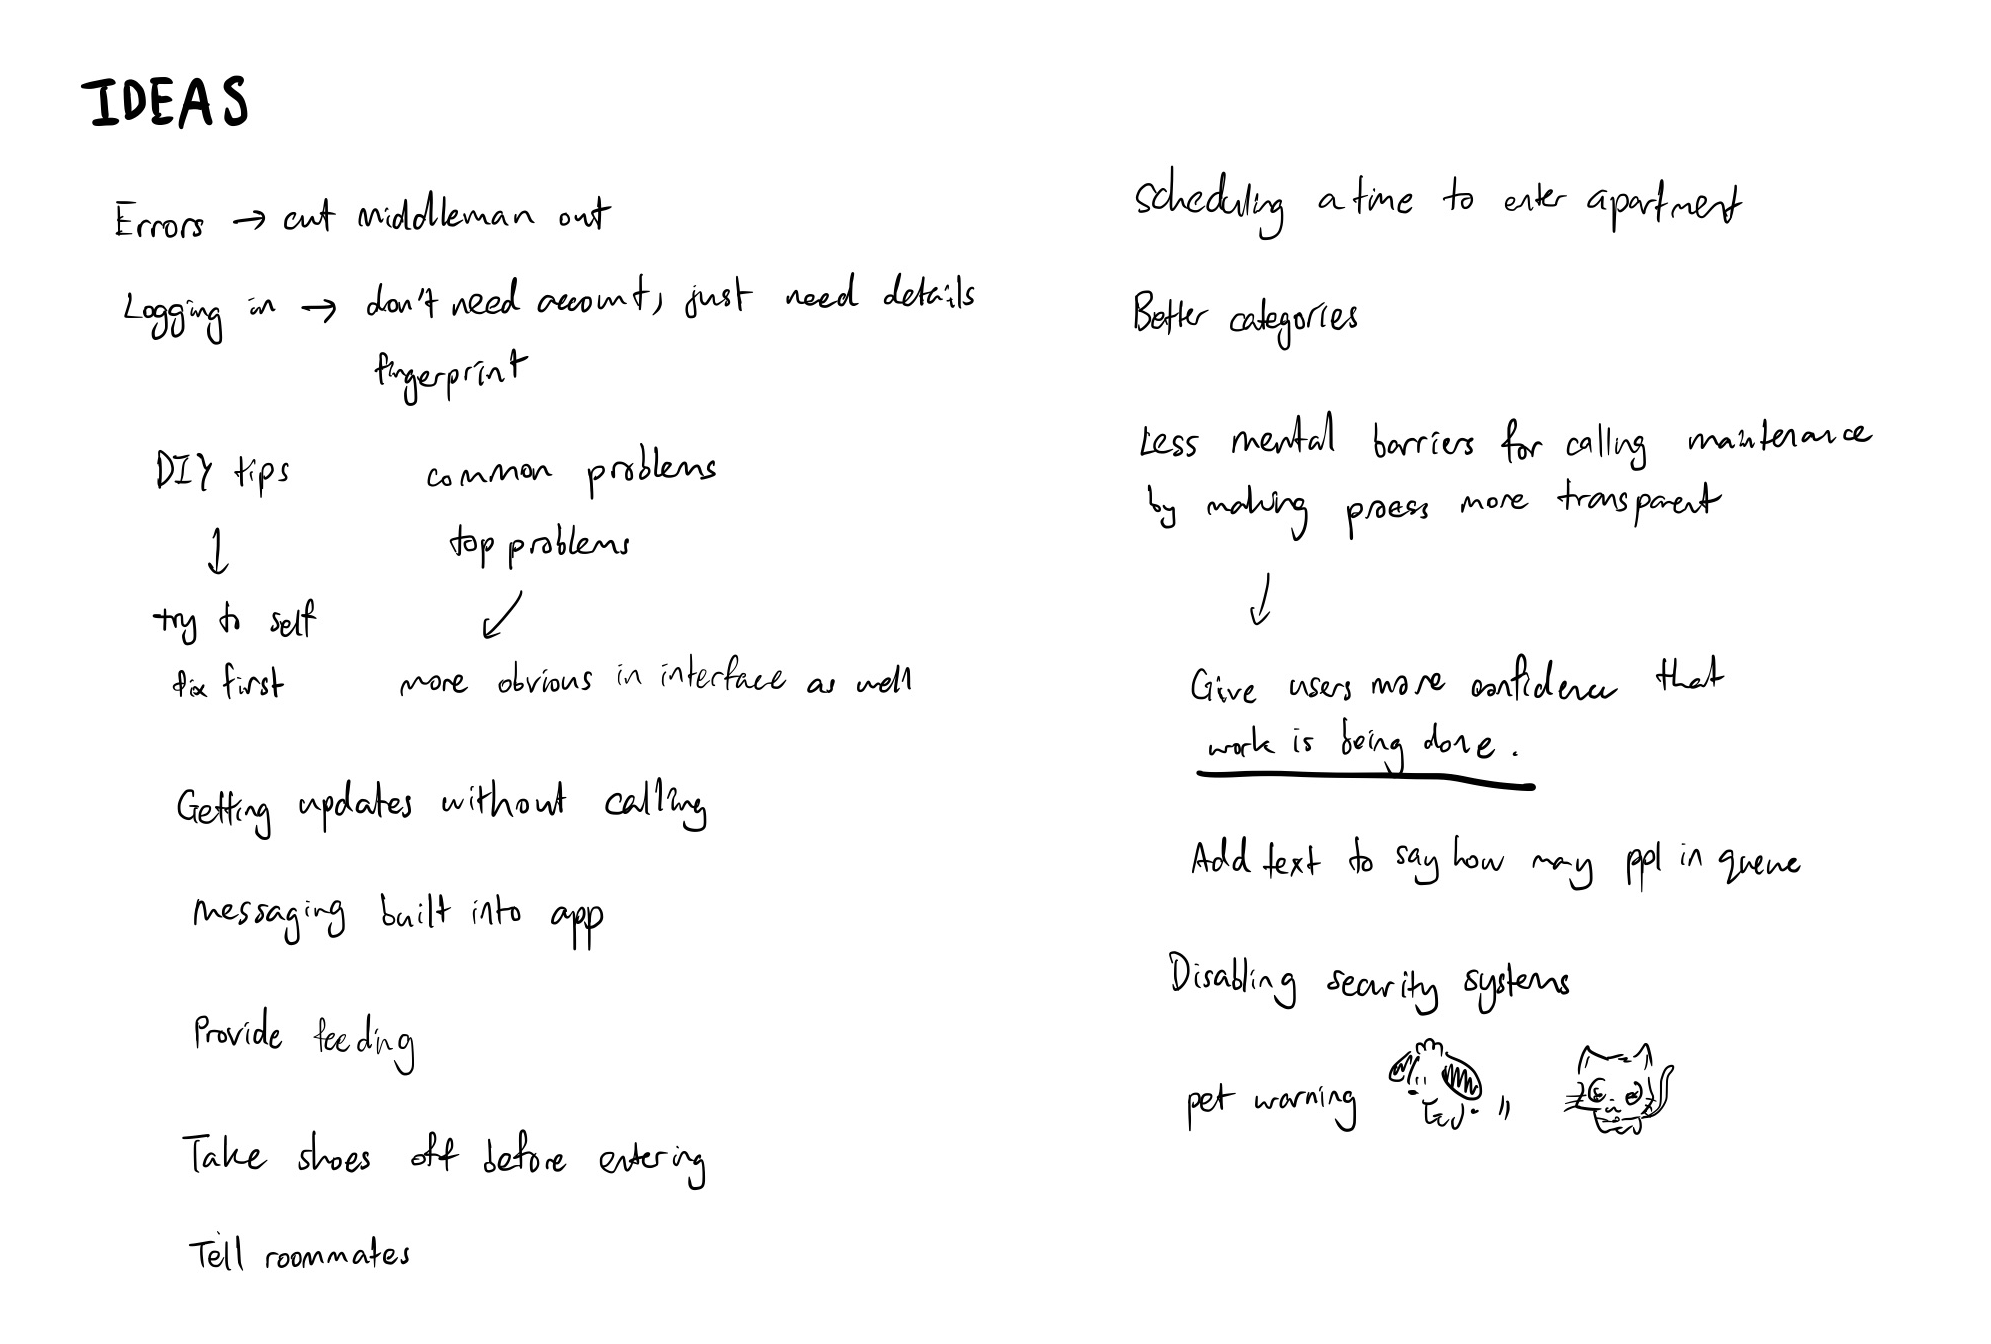 IDEAS
Errors → cut middleman out
Logging in → don't need account, just need details
fingerprint
DIY tips
↓
try to self
fix first
common problems
top problems
↙
more obvious in interface as well
Getting updates without calling
Messaging built into app
Provide feeding
Take shoes off before entering
Tell roommates
Scheduling a time to enter apartment
Better categories
Less mental barriers for calling maintenance
by making process more transparent
↓
Give users more confidence that
work is being done.
Add text to say how may ppl in queue
Disabling security systems
pet warning